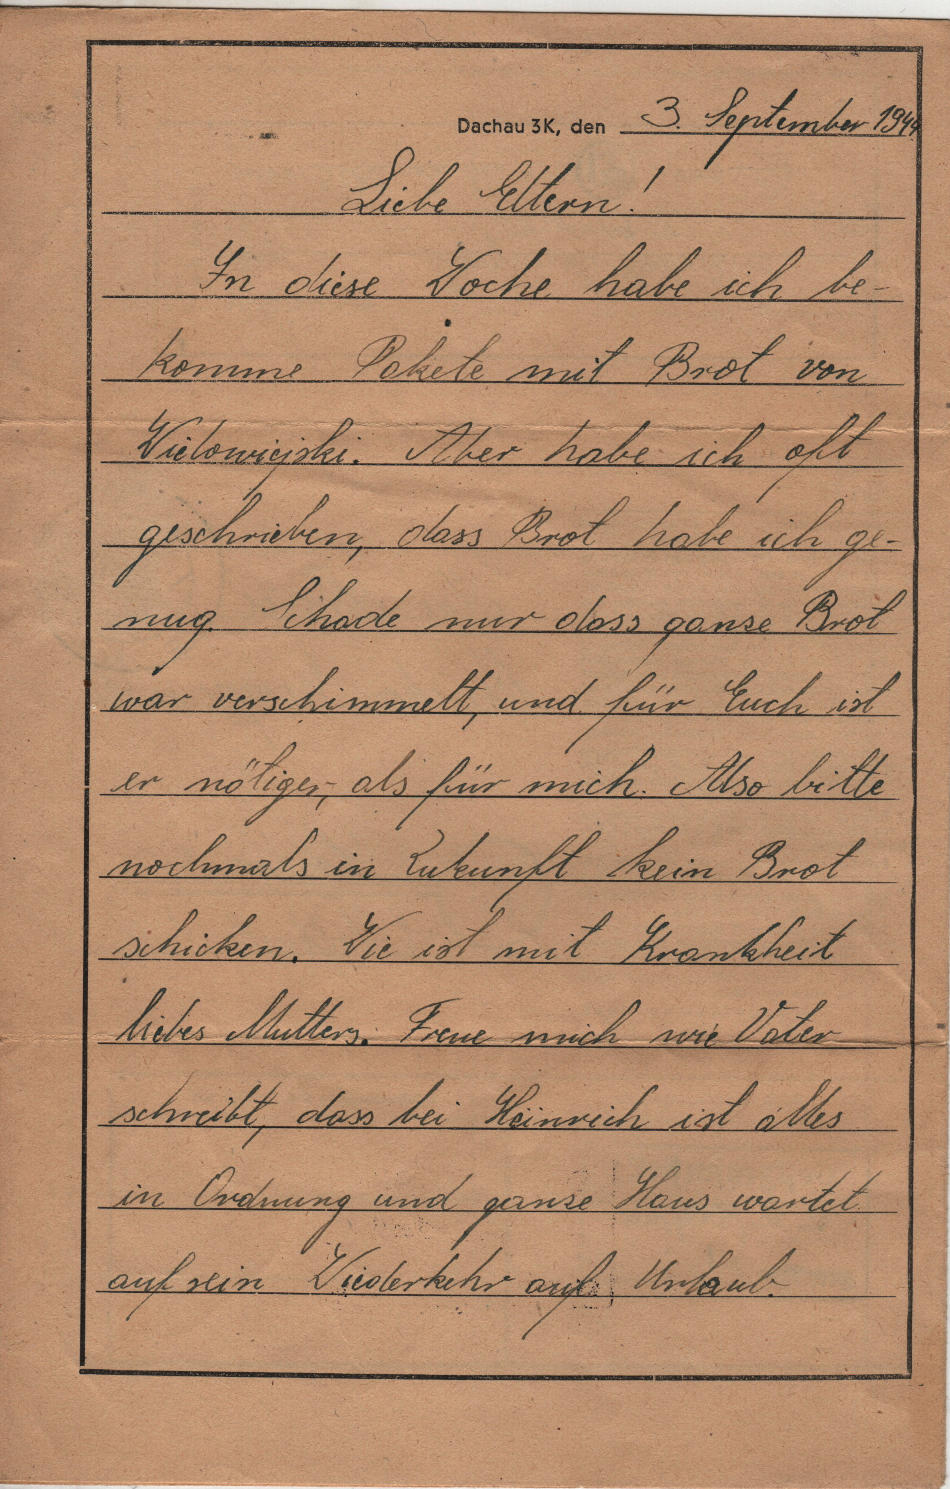 Dachau 3K, den 3. September 1944
Liebe Eltern!
In diese Woche habe ich be-
komme Pakete mit Brot von
Wielowiejski. Aber habe ich oft
geschrieben, dass Brot habe ich ge-
nug. Schade nur dass ganse Brot
war verschimmelt, und für Euch ist
er nötiger, als für mich. Also bitte
nochmals in Zukunft kein Brot
schicken. Wie ist mit Krankheit
liebes Mutters. Freue mich wie Vater
schreibt, dass bei Heinrich ist alles
in Ordnung und ganse Haus wartet
auf sein Wiederkehr auf Urlaub.